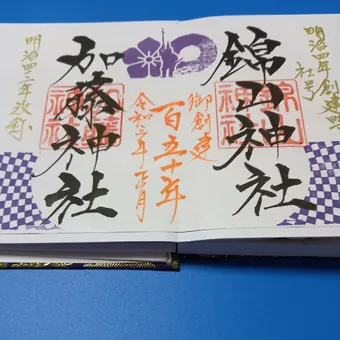 明治四年創建時
社号
錦山神社
錦山神社
御創建
百五十年
令和三年正月
加藤神社
明治四二年改称